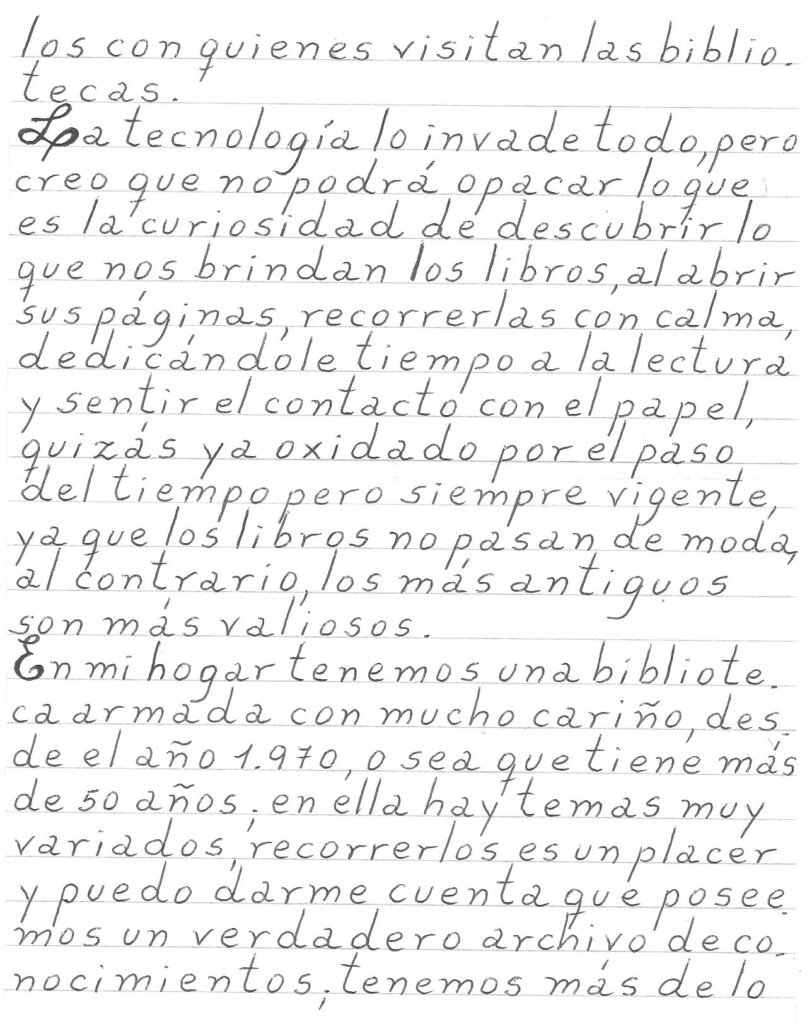 los con quienes visitan las biblio-
tecas.
La tecnología lo invade todo, pero
creo que no podrá opacar lo que
es la curiosidad de descubrir lo
que nos brindan los libros, al abrir
sus páginas, recorrerlas con calma,
dedicándole tiempo a la lectura
y sentir el contacto con el papel,
quizás ya oxidado por el paso
del tiempo pero siempre vigente,
ya que los libros no pasan de moda,
al contrario, los más antiguos
son más valiosos.
En mi hogar tenemos una bibliote-
ca armada con mucho cariño, des-
de el año 1.970, o sea que tiene más
de 50 años; en ella hay temas muy
variados, recorrerlos es un placer
y puedo darme cuenta que posee-
mos un verdadero archivo de co-
nocimientos; tenemos más de lo